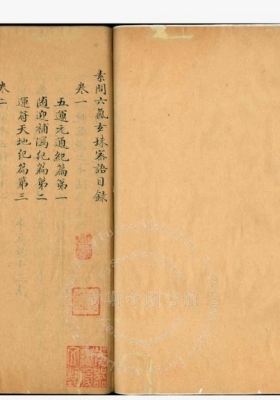 素問六氣玄珠密語目錄
卷一
五運元通紀篇第一
隨迎補瀉紀篇第二
運符天地紀篇第三
卷二